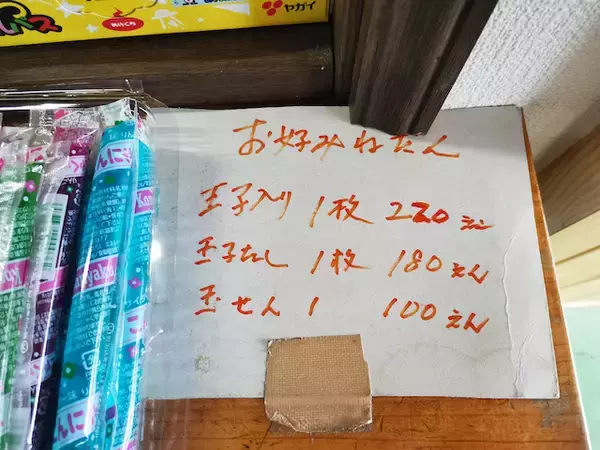 ヤガイ
お好みねだん
玉子入り 1枚 220えん
玉子なし 1枚 180えん
玉せん 1 100えん